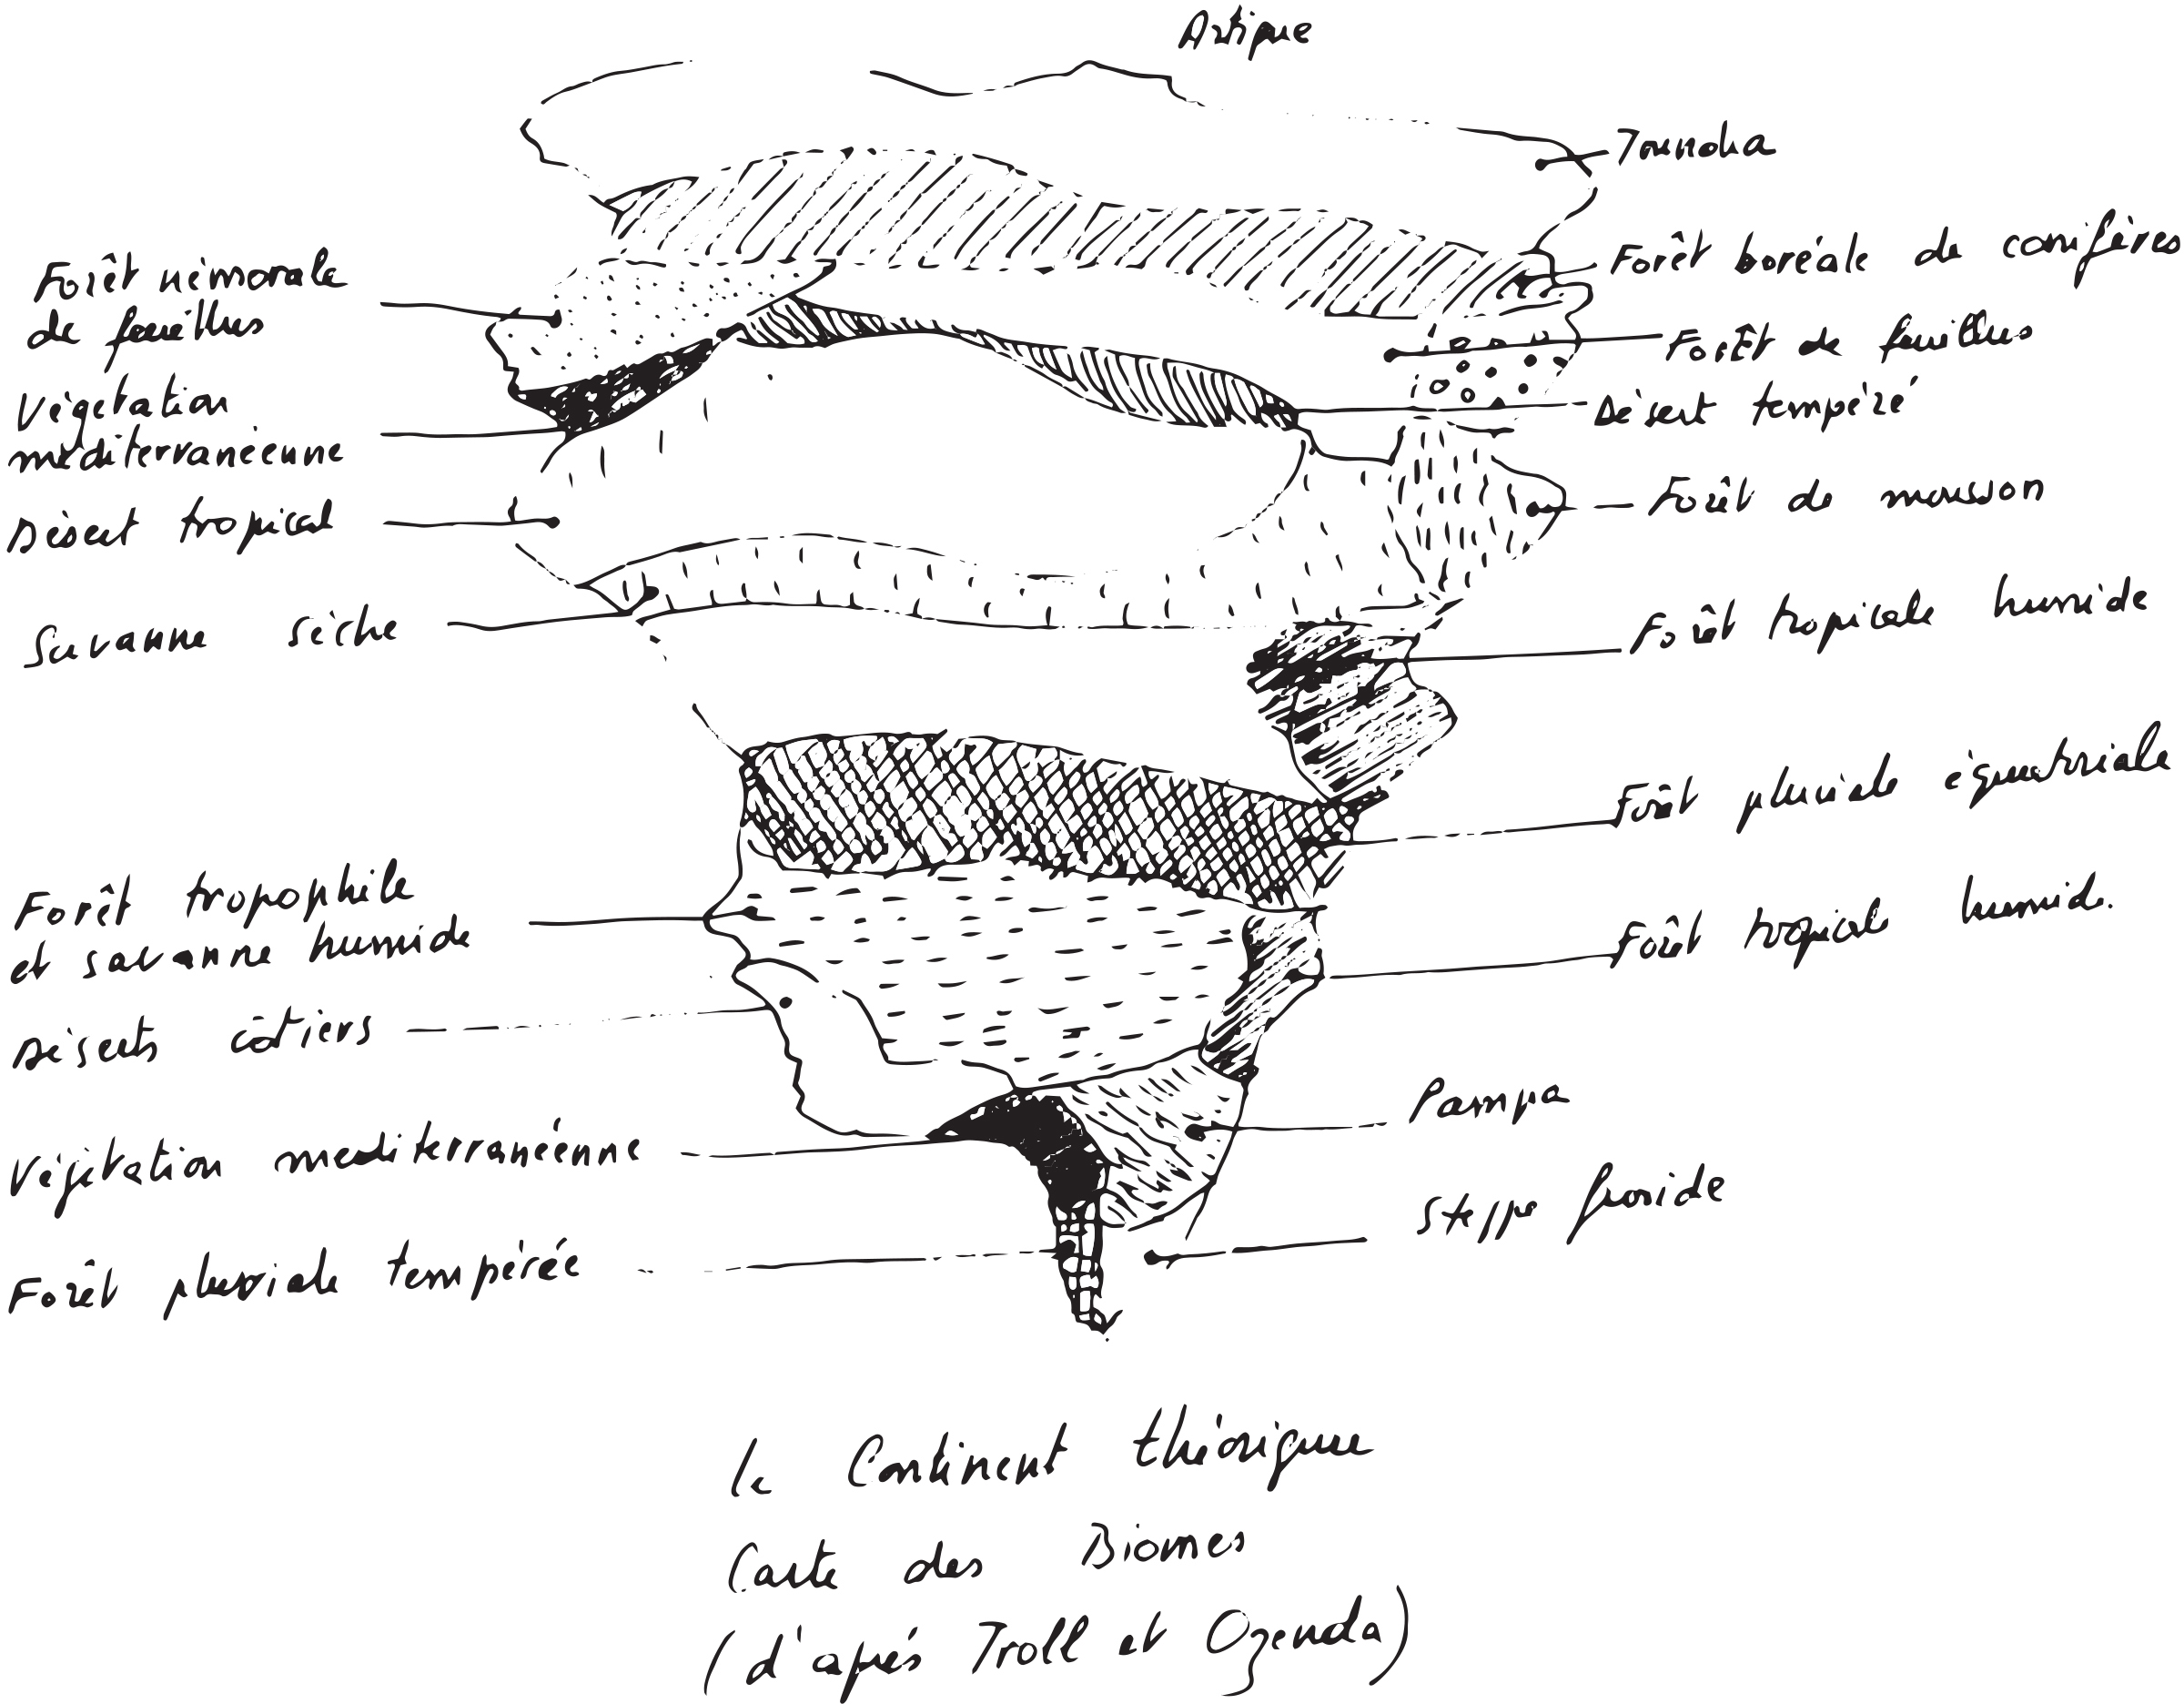 Artique
Toundra
Forêt boréale de conifères
Forêt némorale
de feuillus
Forêt de feuillus
Végétation
méditerranéenne
Désert tempéré
Désert tropical
Forêt de mousson
Savane sèche
Forêt tropicale humide
Forêt pluviale équatoriale
Forêt tropophile
et savane humide
Forêt tropicale humide.
côtiers
Pampa
Végétation méditerranéenne
Steppe froide
Forêt pluviale tempérée
le Continent théorique
Carte des Biomes
(d'après Troll et Ozenda)